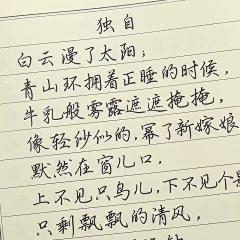 独自
白云漫了太阳；
青山环拥着正睡的时候，
牛乳般雾露遮遮掩掩，
像轻纱似的，幂了新嫁娘
默然在窗儿口，
上不见只鸟儿，下不见个
只剩飘飘的清风，